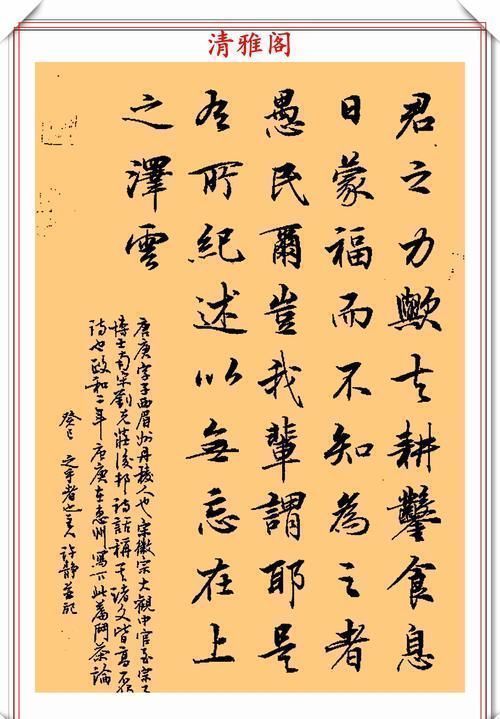 清雅阁
君之力歟夫耕鑿食息
日蒙福而不知為之者
愚民爾豈我輩謂耶是
有所紀述以無忘在上
之澤雲
唐庚字子西眉州丹棱人也宋徽宗大觀中官至宗子
博士南宋劉克莊後邨詩話稱其諸文皆高不獨
詩也政和二年唐庚在惠州寫下此篇鬥茶論
癸巳 之乎者也主人許靜并記